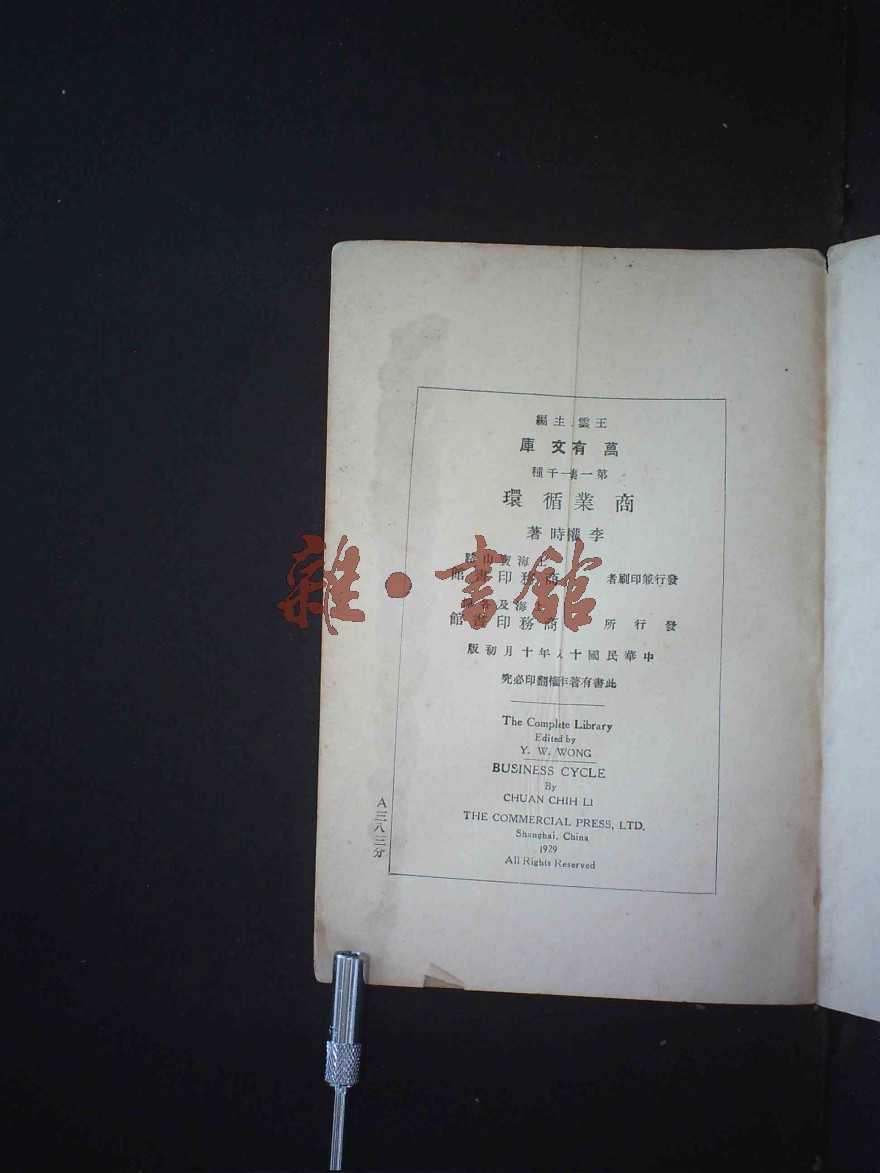 王雲 主編
萬有文庫
第一集一千種
商業循環
李權時著
發行兼印刷者
上海寶山路
商務印書館
發行所
上海及各埠
商務印書館
中華民國十八年十月初版
此書有著作權翻印必究
The Complete Library
Edited by
Y. W. WONG
BUSINESS CYCLE
By
CHUAN CHIH LI
THE COMMERCIAL PRESS, LTD.
Shanghai, China
1929
All Rights Reserved
A三八三分
雜·書館